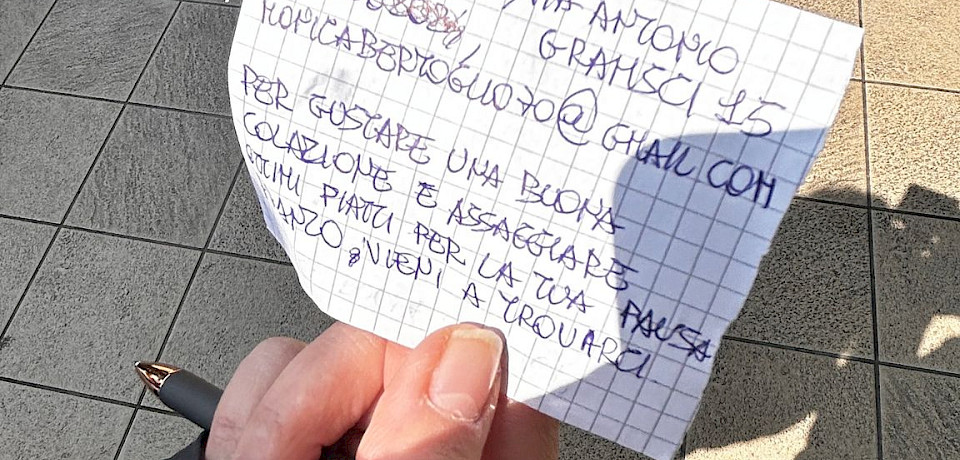 VIA ANTONIO
GRAMSCI 15
MONICABERTOGLIO70@GMAIL.COM
PER GUSTARE UNA BUONA
COLAZIONE E ASSAGGIARE
OTTIMI PIATTI PER LA TUA PAUSA
PRANZO, VIENI A TROVARCI